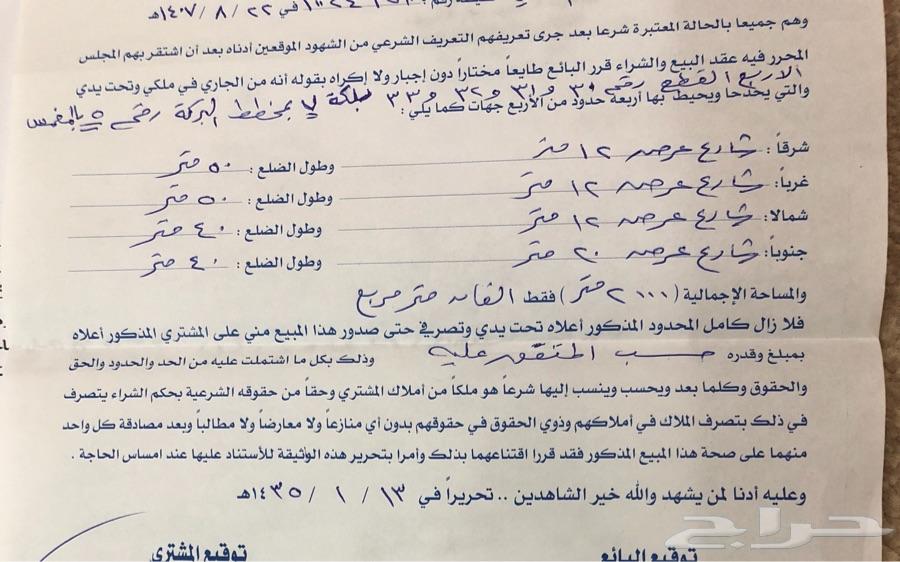 في ٢٢ / ٨ / ١٤٠٧هـ
وهم جميعا بالحالة المعتبرة شرعا بعد جرى تعريفهم التعريف الشرعي من الشهود الموقعين أدناه بعد أن اشتقر بهم المجلس
المحرر فيه عقد البيع والشراء قرر البائع طايعاً مختاراً دون إجبار ولا إكراه بقوله أنه من الجاري في ملكي وتحت يدي
الاربع القطع رقم ٣٠ و٣١ و٣٢ و٣٣ بلكة بمخطط البركة رقم ٥ بالمغمس
والتي يحدها ويحيط بها أربعة حدود من الأربع جهات كما يلي :
شرقاً : شارع عرضه ١٢ متر وطول الضلع : ٥٠ متر
غرباً : شارع عرضه ١٢ متر وطول الضلع : ٥٠ متر
شمالا : شارع عرضه ١٢ متر وطول الضلع : ٤٠ متر
جنوباً : شارع عرضه ٢٠ متر وطول الضلع : ٤٠ متر
والمساحة الإجمالية ( ٢٠٠٠ متر ) فقط الفان متر مربع
فلا زال كامل المحدود المذكور أعلاه تحت يدي وتصرفي حتى صدور هذا المبيع مني على المشتري المذكور أعلاه
بمبلغ وقدره حسب المتفق عليه وذلك بكل ما اشتملت عليه من الحد والحدود والحق
والحقوق وكلما بعد ويحسب وينسب إليها شرعاً هو ملكاً من أملاك المشتري وحقاً من حقوقه الشرعية بحكم الشراء يتصرف
في ذلك بتصرف الملاك في أملاكهم وذوي الحقوق في حقوقهم بدون أي منازعاً ولا معارضاً ولا مطالباً وبعد مصادقة كل واحد
منهما على صحة هذا المبيع المذكور فقد قررا اقتناعهما بذلك وأمرا بتحرير هذه الوثيقة للأستناد عليها عند امساس الحاجة .
وعليه أدنا لمن يشهد والله خير الشاهدين .. تحريراً في ١٣ / ١ / ١٤٣٥هـ
توقيع البائع توقيع المشتري
حراج